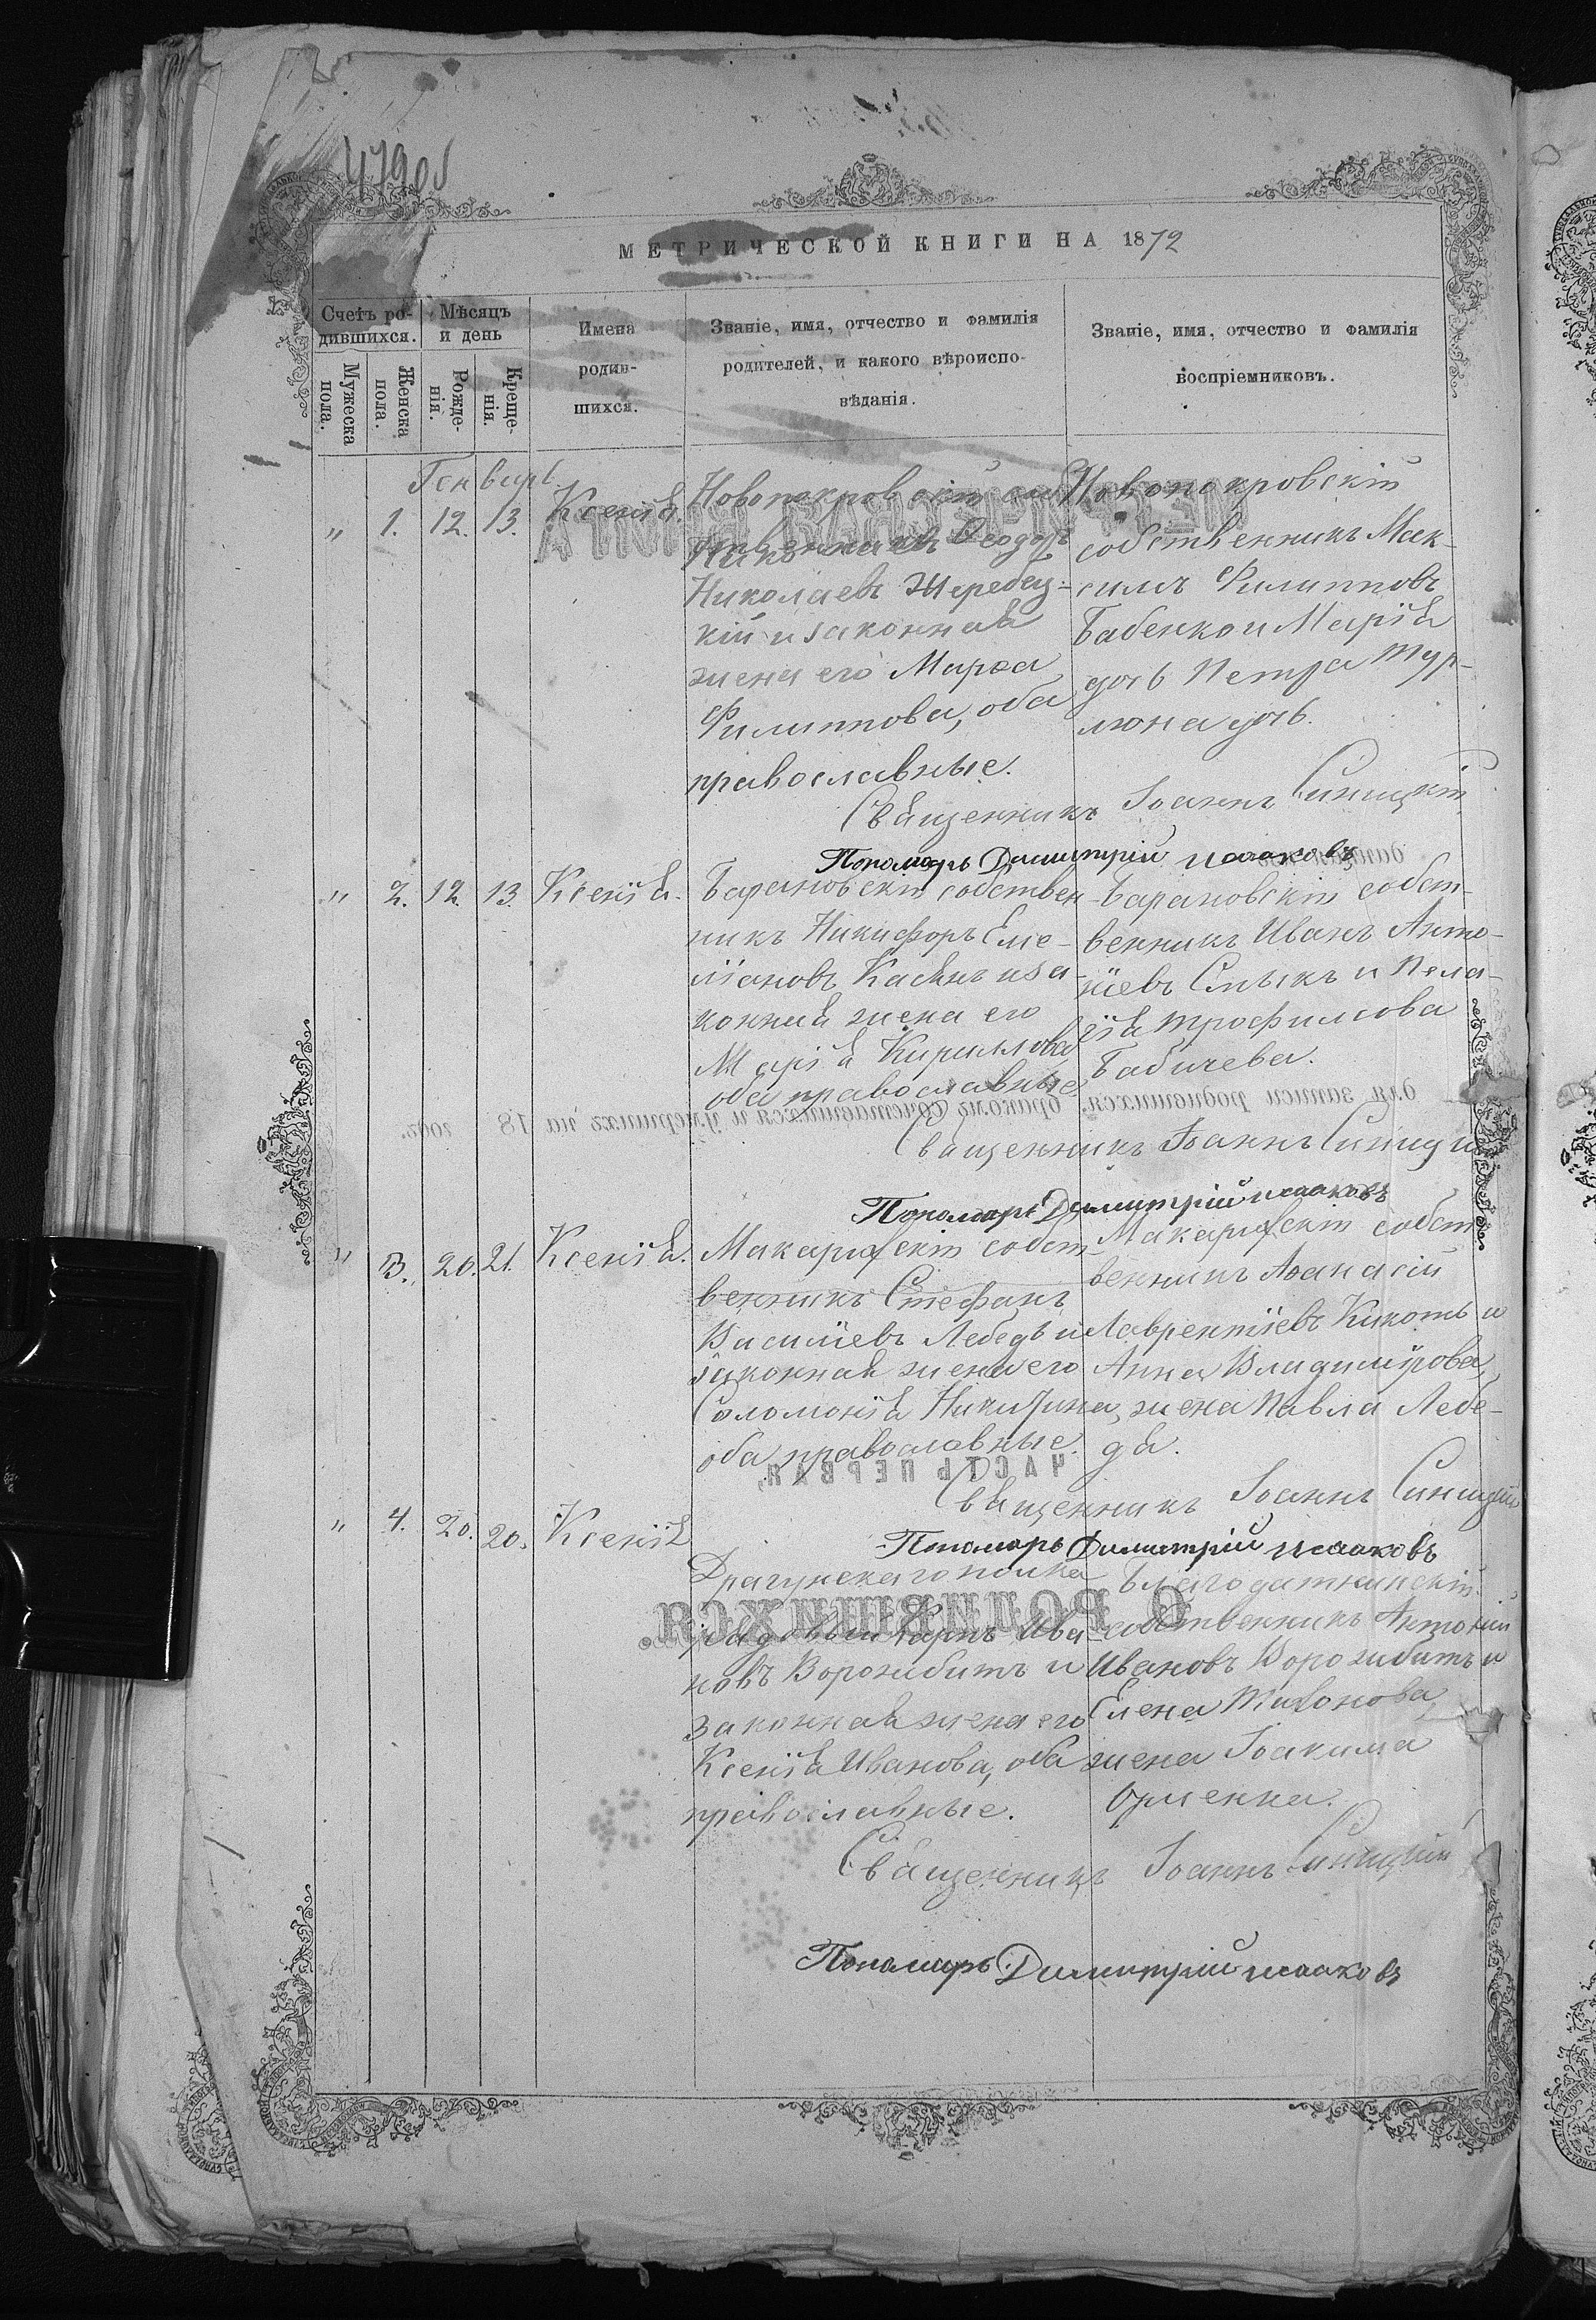 47901
МЕТРИЧЕСКОЙ КНИГИ НА 1872
Счетъ ро-
дившихся.
Мѣсяцъ
и день
Мужеска
пола.
Женска
пола.
Рожде-
нія.
Креще-
нія.
Имена
родив-
шихся.
Званіе, имя, отчество и фамилія
родителей, и какого вѣроиспо-
вѣданія.
Званіе, имя, отчество и фамилія
воспріемниковъ.
Генварь.
„ 1. 12. 13. Ксенія.
Новопокровскій соб
ственникъ Ѳеодоръ
Николаевъ Жеребец-
кій и законная
жена его Марѳа
Филиппова, оба
православные.
Новопокровскій
собственникъ Мак-
симъ Филипповъ
Бабенко и Марія
дочь Петра Тур-
люна дочь.
Священникъ Іоаннъ Синицкій
Пономарь Димитрій Исааковъ
„ 2. 12. 13. Ксенія.
Барановскій собствен-
никъ Никифоръ Еме-
ліановъ Касьянъ и за-
конная жена его
Марія Кириллова
оба православные.
Барановскій собст-
венникъ Иванъ Анто-
ніевъ Смыкъ и Пела-
гія Трофимова
Бабичева.
Священникъ Іоаннъ Синицкій
Пономарь Димитрій Исааковъ
„ 3. 20. 21. Ксенія.
Макаровскій собст-
венникъ Стефанъ
Василіевъ Лебедь и
законная жена его
Соломонія Никитина,
оба православные.
Макаровскій собст
венникъ Аѳанасій
Лаврентіевъ Кикоть и
Анна Владимірова,
жена Павла Лебе-
дя.
Священникъ Іоаннъ Синицкій
Пономарь Димитрій Исааковъ
„ 4. 20. 20. Ксенія
Драгунскаго полка
рядовый Карпъ Ива-
новъ Ворожбитъ и
законная жена его
Ксенія Иванова, оба
православные.
Благодатнинскій
собственникъ Антоній
Ивановъ Ворожбитъ и
Елена Тихонова,
жена Іоакима
Священникъ Іоаннъ Синицкій
Пономарь Димитрій Исааковъ